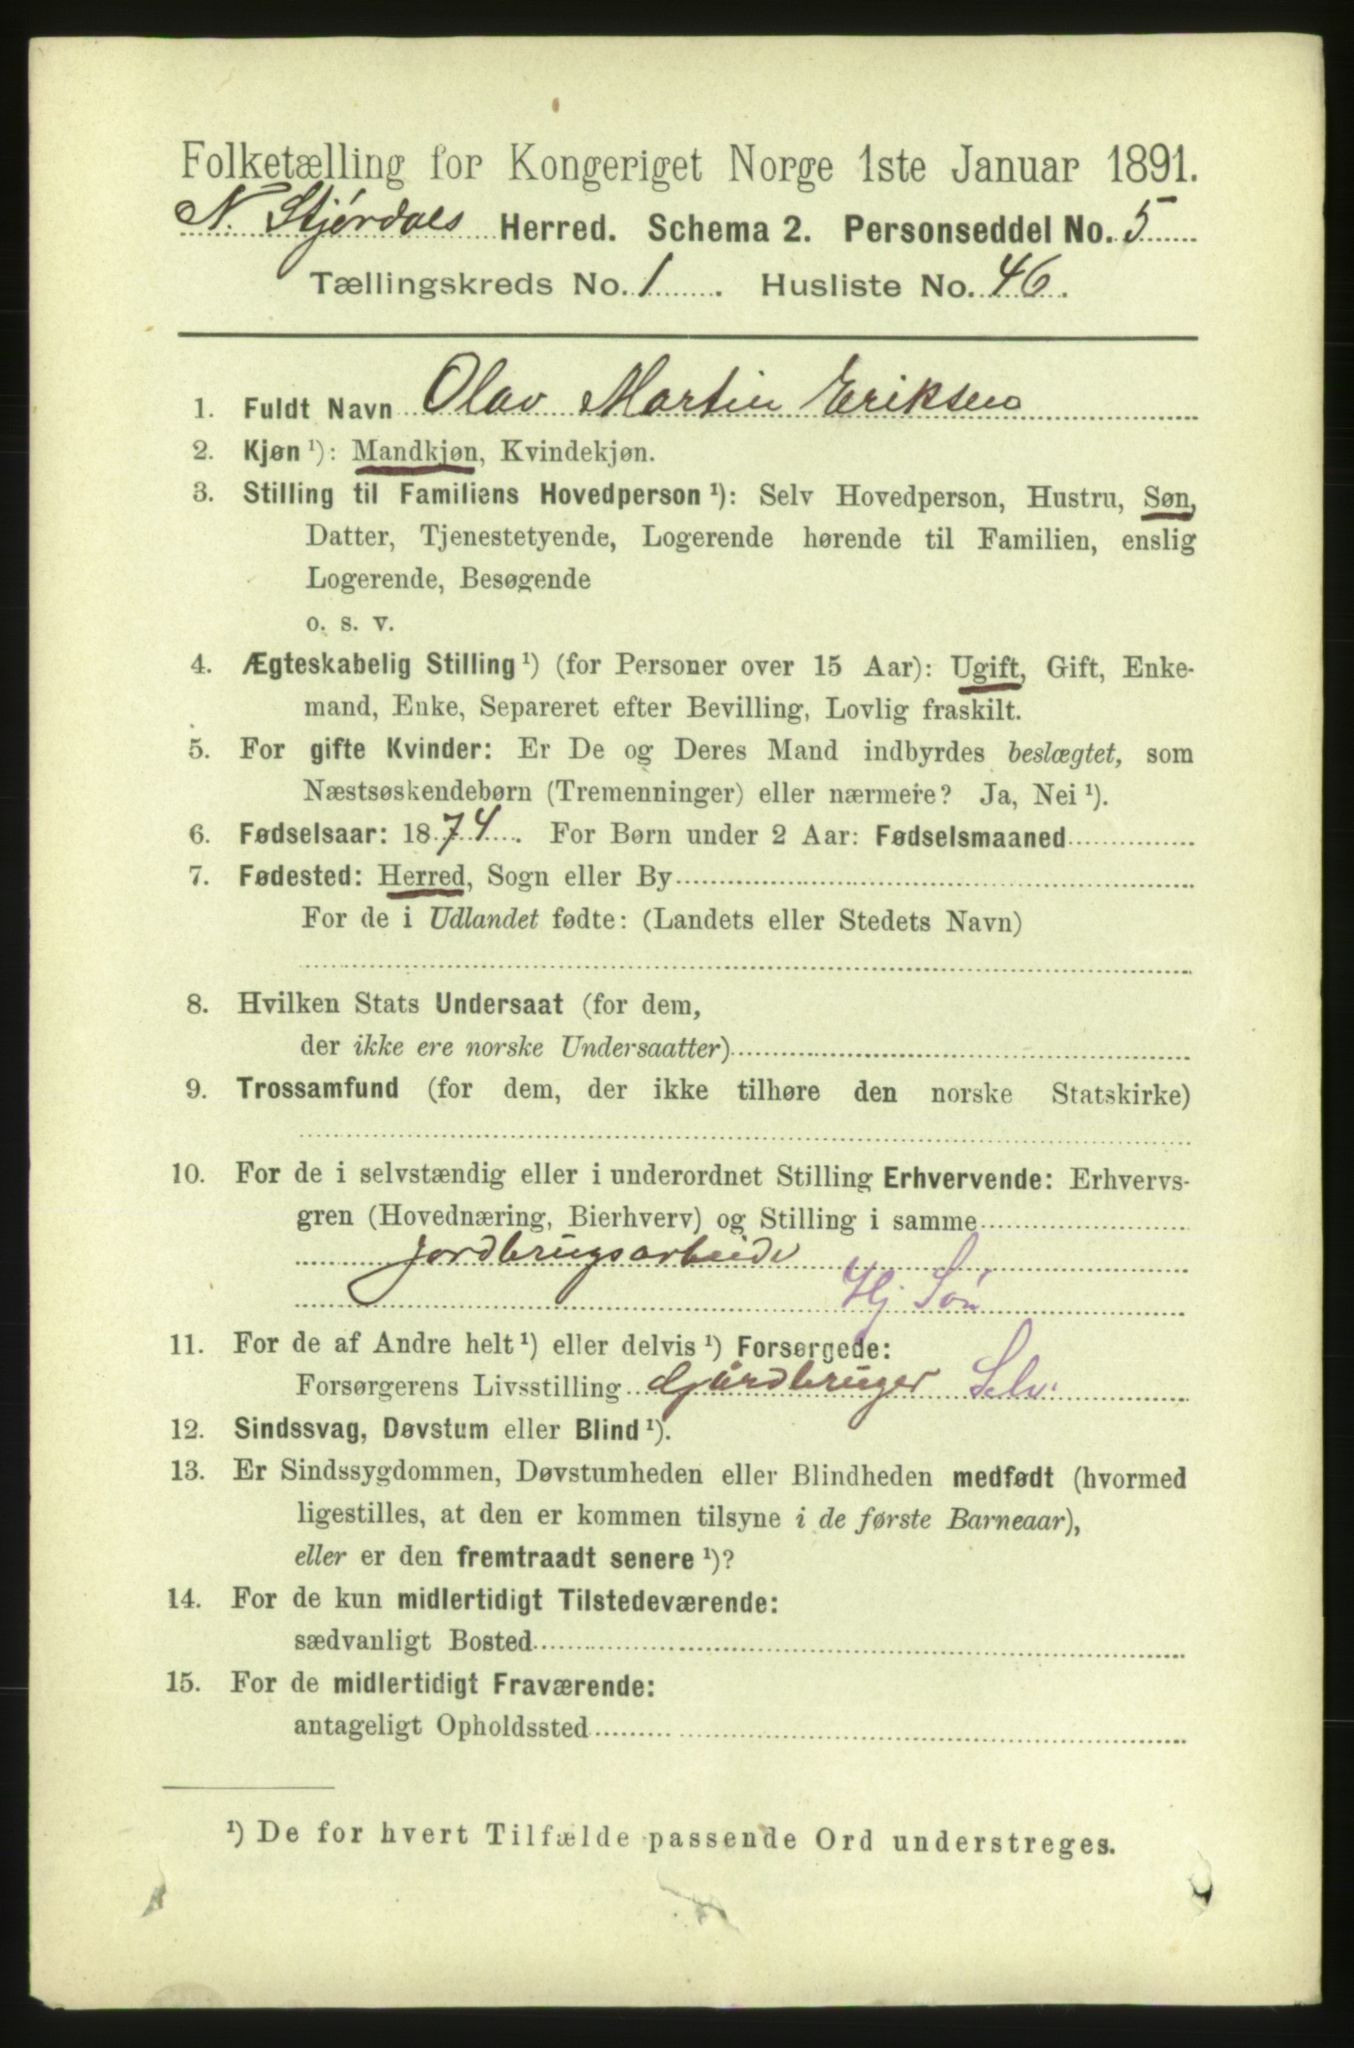 Folketælling for Kongeriget Norge 1ste Januar 1891.
N. Stjørdals Herred. Schema 2. Personseddel No. 5
Tællingskreds No. 1. Husliste No. 46.
1. Fuldt Navn Olav Martin Eriksen
2. Kjøn ¹): Mandkjøn, Kvindekjøn.
3. Stilling til Familiens Hovedperson ¹): Selv Hovedperson, Hustru, Søn,
Datter, Tjenestetyende, Logerende hørende til Familien, enslig
Logerende, Besøgende
o. s. v.
4. Ægteskabelig Stilling ¹) (for Personer over 15 Aar): Ugift, Gift, Enke-
mand, Enke, Separeret efter Bevilling, Lovlig fraskilt.
5. For gifte Kvinder: Er De og Deres Mand indbyrdes beslægtet, som
Næstsøskendebørn (Tremenninger) eller nærmere? Ja, Nei ¹).
6. Fødselsaar: 1874. For Børn under 2 Aar: Fødselsmaaned
7. Fødested: Herred, Sogn eller By
For de i Udlandet fødte: (Landets eller Stedets Navn)
8. Hvilken Stats Undersaat (for dem,
der ikke ere norske Undersaatter)
9. Trossamfund (for dem, der ikke tilhøre den norske Statskirke)
10. For de i selvstændig eller i underordnet Stilling Erhvervende: Erhvervs-
gren (Hovednæring, Bierhverv) og Stilling i samme
jordbrugsarbeide
Hj Søn
11. For de af Andre helt ¹) eller delvis ¹) Forsørgede:
Forsørgerens Livsstilling Gårdbruger Selv.
12. Sindssvag, Døvstum eller Blind ¹).
13. Er Sindssygdommen, Døvstumheden eller Blindheden medfødt (hvormed
ligestilles, at den er kommen tilsyne i de første Barneaar),
eller er den fremtraadt senere ¹)?
14. For de kun midlertidigt Tilstedeværende:
sædvanligt Bosted
15. For de midlertidigt Fraværende:
antageligt Opholdssted
¹) De for hvert Tilfælde passende Ord understreges.